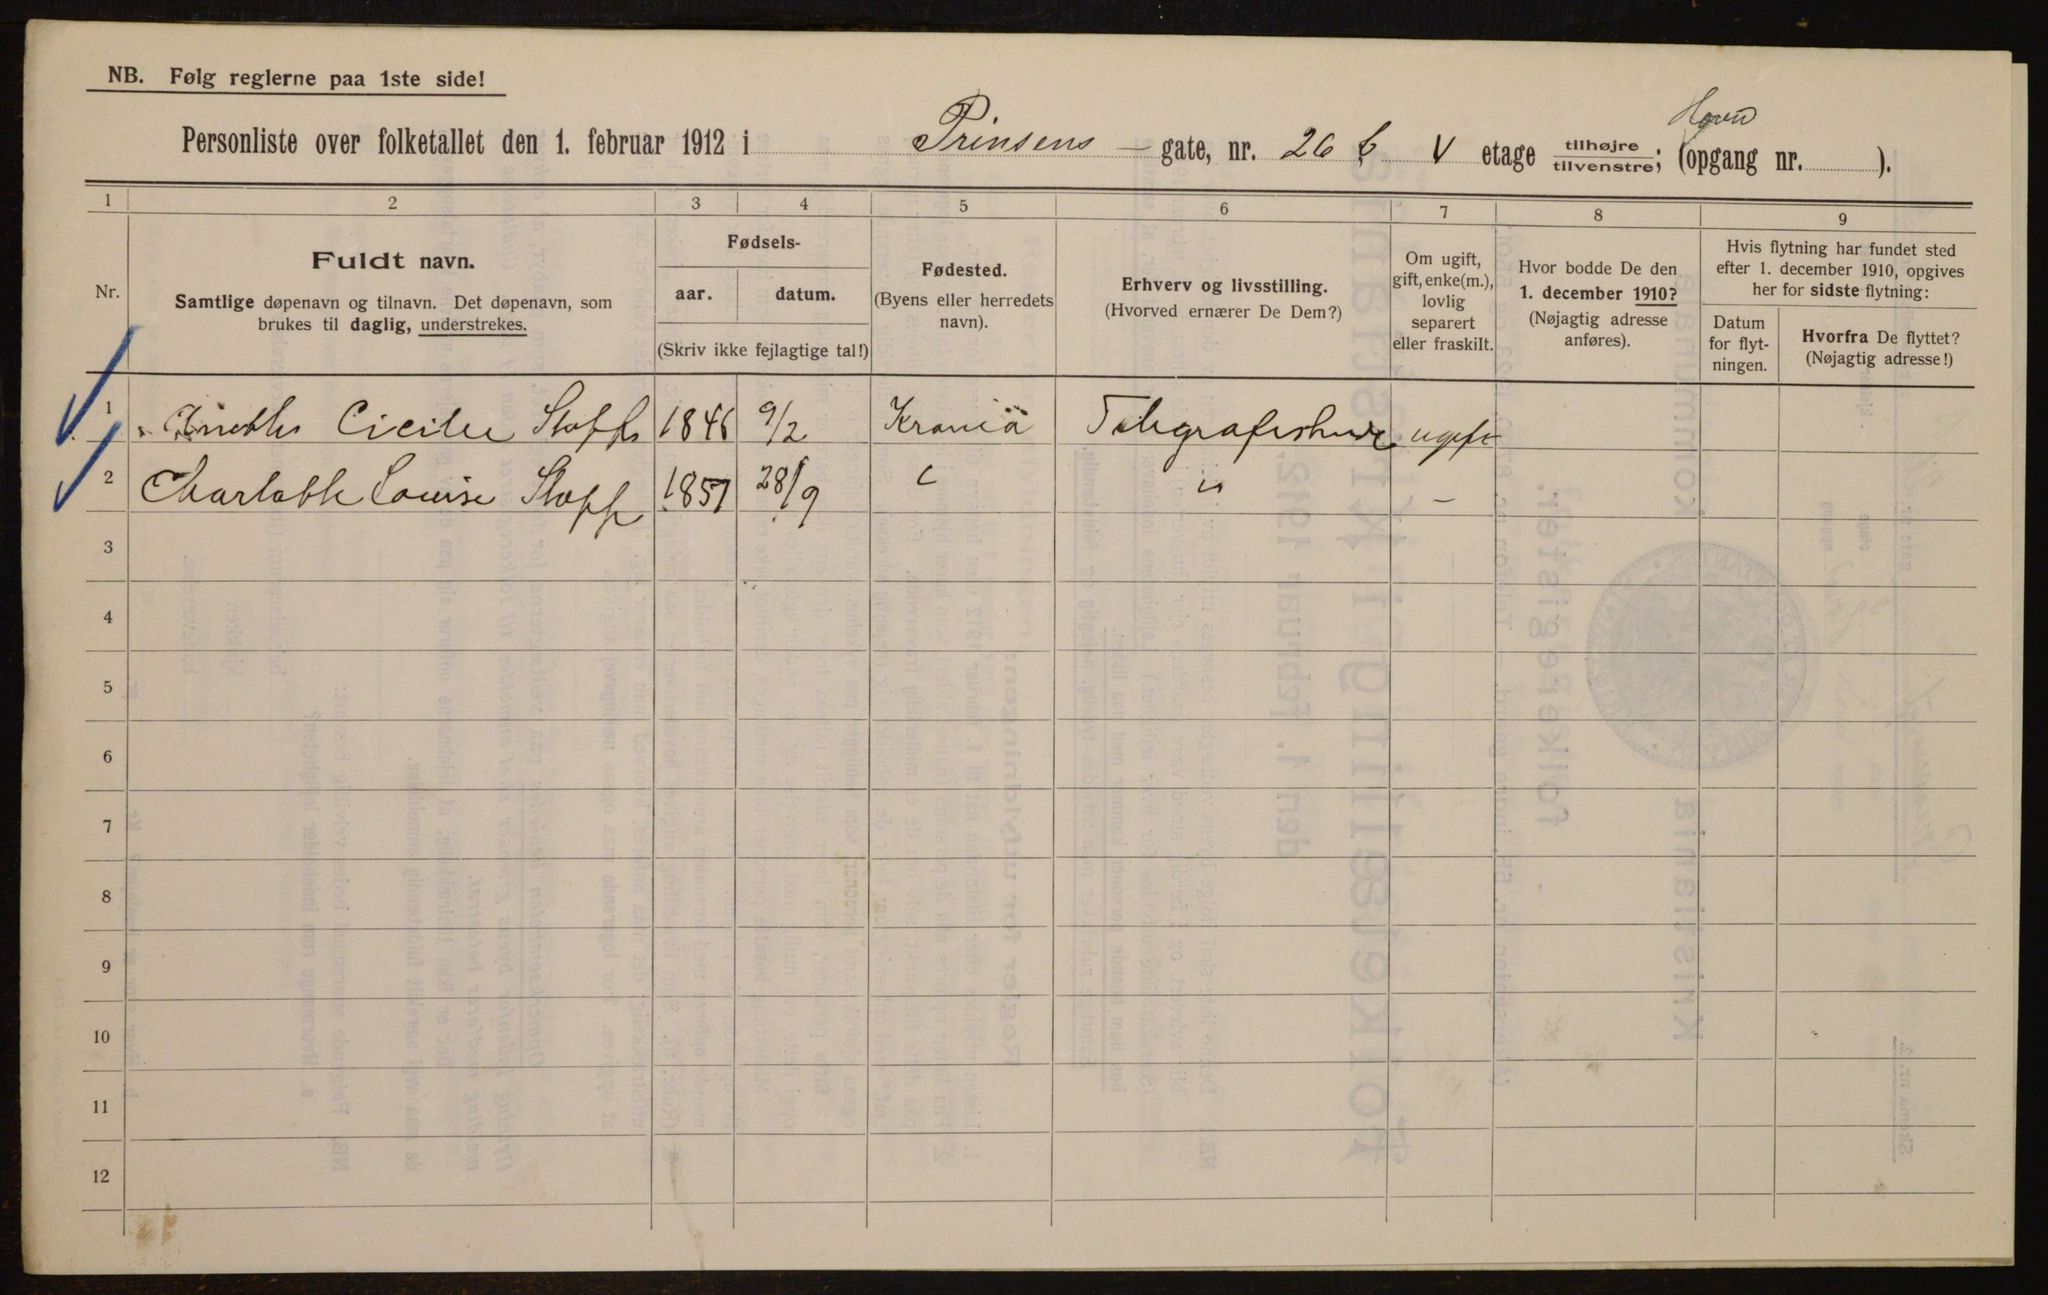 NB. Følg reglerne paa 1ste side!
Hovd
Personliste over folketallet den 1. februar 1912 i Prinsens gate, nr. 26 b V etage tilhøjre tilvenstre; (opgang nr. ).
1 2 3 4 5 6 7 8 9
Nr.
Fuldt navn.
Samtlige døpenavn og tilnavn. Det døpenavn, som
brukes til daglig, understrekes.
Fødsels-
aar. datum.
(Skriv ikke fejlagtige tal!)
Fødested.
(Byens eller herredets
navn).
Erhverv og livsstilling.
(Hvorved ernærer De Dem?)
Om ugift,
gift, enke(m.),
lovlig
separert
eller fraskilt.
Hvor bodde De den
1. december 1910?
(Nøjagtig adresse
anføres).
Hvis flytning har fundet sted
efter 1. december 1910, opgives
her for sidste flytning:
Datum
for flyt-
ningen.
Hvorfra De flyttet?
(Nøjagtig adresse!)
1 Cicilie 1846 9/2 Kraniä ugift
2 Louise 1857 28/9 " " –
3
4
5
6
7
8
9
10
11
12